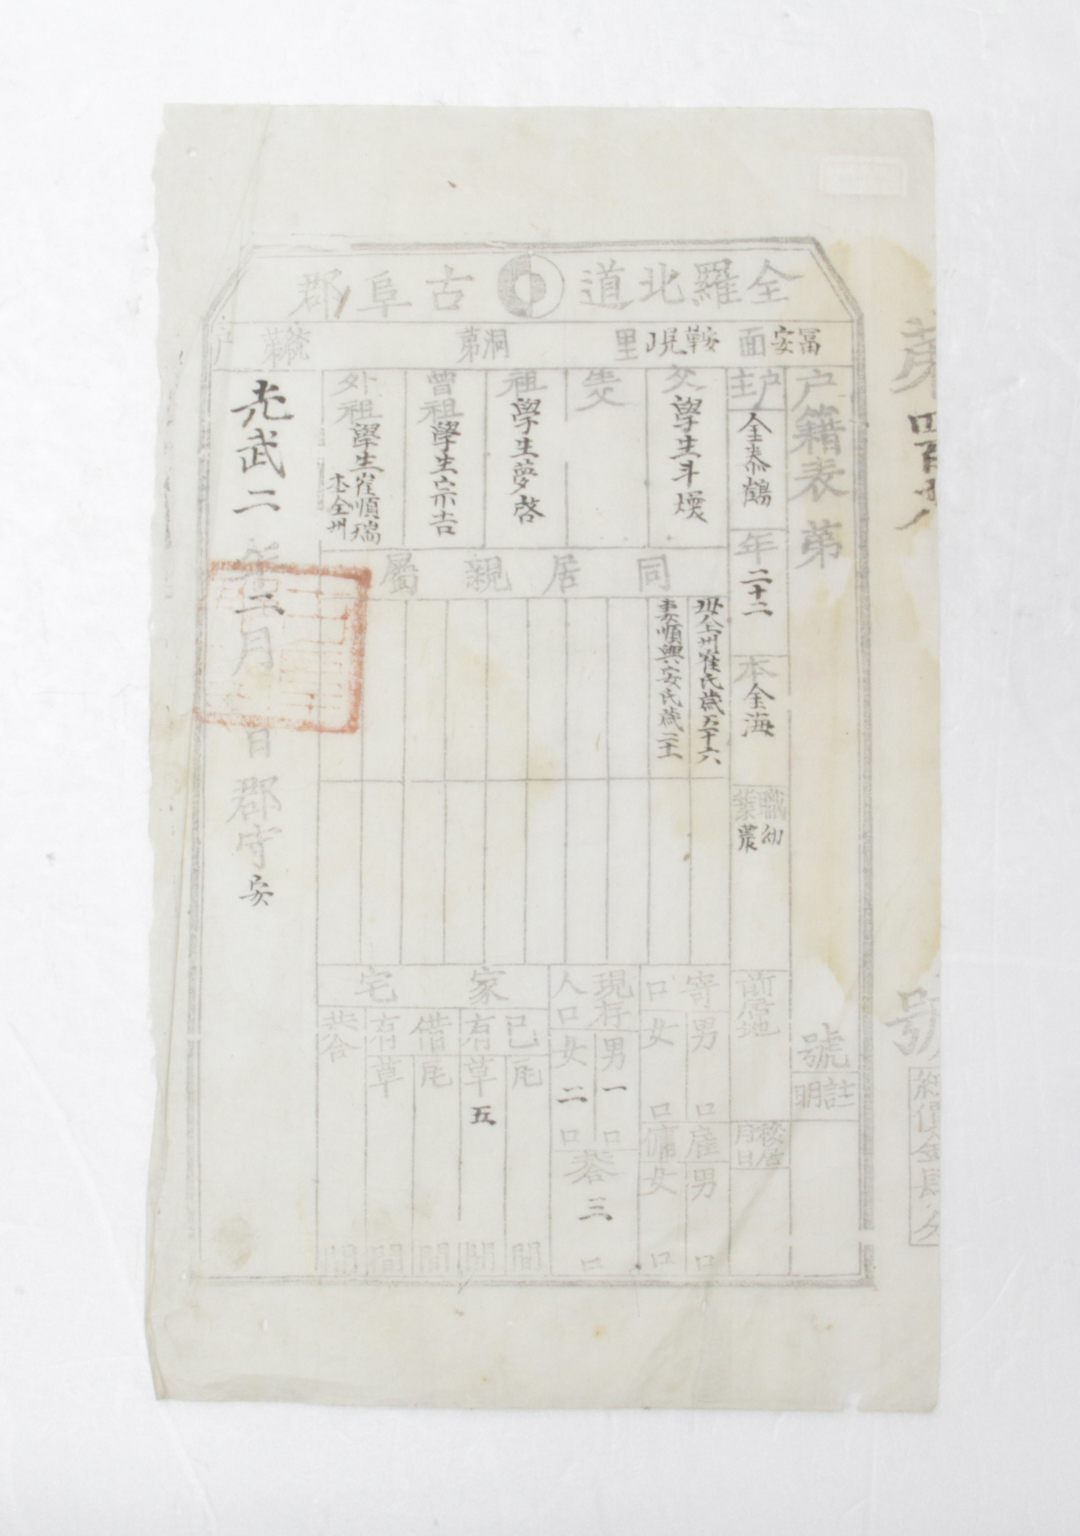 第四百廿八
號
全羅北道古阜郡
富安面鞍峴里 洞第 統第 戶
戶籍表第
號
註明
戶主金泰鶴
年二十二
本金海
職業幼農
前居地
移居月日
父學生斗煥
生父
祖學生夢啓
曾祖學生宗吉
外祖學生崔順瑞
本全州
同居親屬
母全州崔氏歲五十六
妻順興安氏歲二十一
寄口 男 口 女 口
雇傭 男 口 女 口
現存人口 男一口 女二口
共合三口
家宅
己有 瓦 間 草五間
借有 瓦 間 草 間
共合 間
光武二年二月 日郡守安